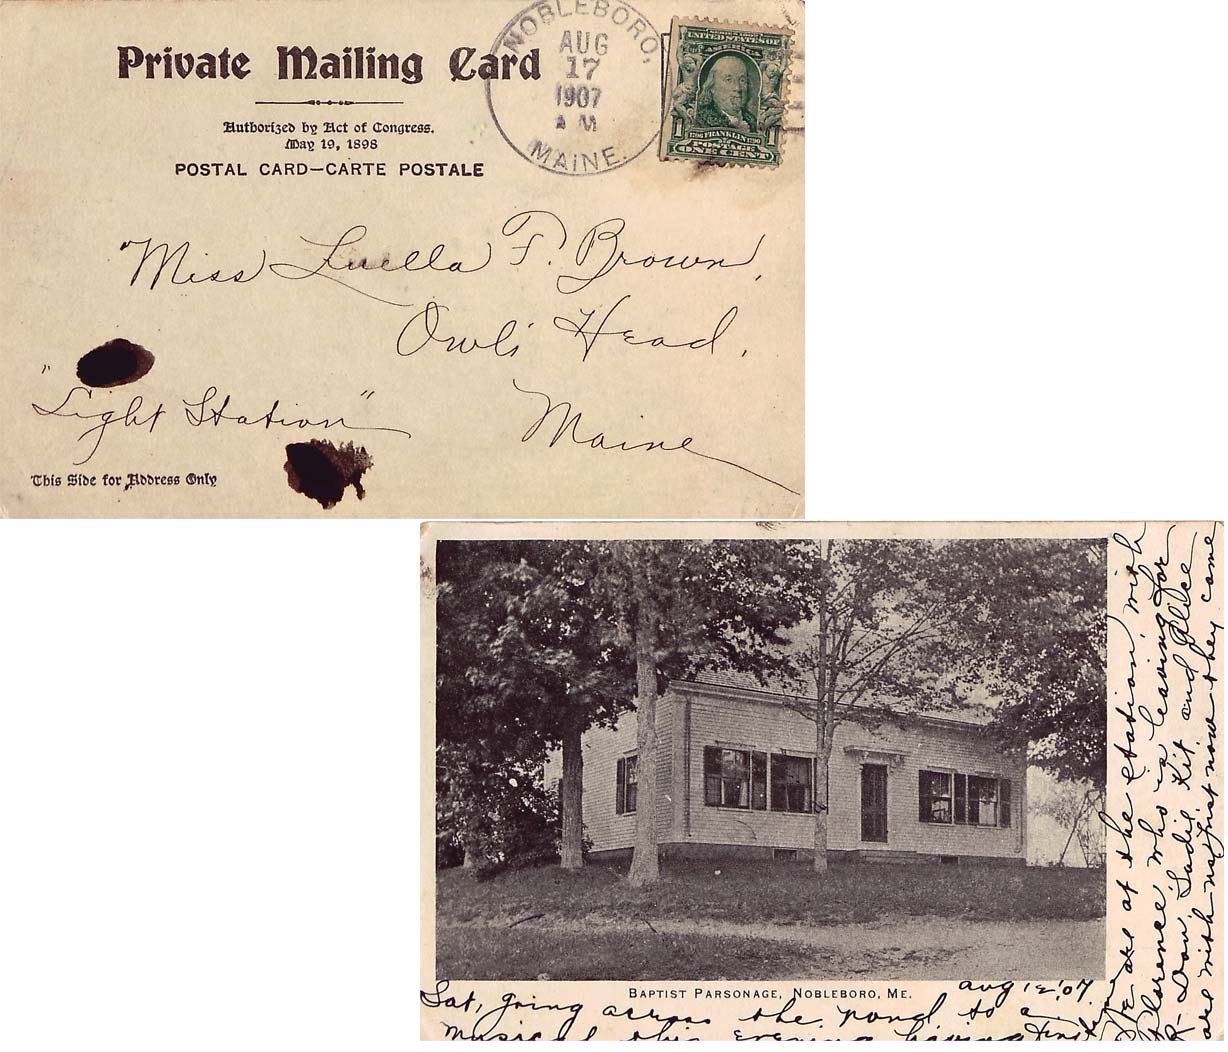 Private Mailing Card
Authorized by Act of Congress.
May 19, 1898
POSTAL CARD—CARTE POSTALE
NOBLEBORO,
AUG
17
1907
A M
MAINE.
SERIES 1902
UNITED STATES OF
AMERICA
1
1706 FRANKLIN 1790
1
POSTAGE
ONE CENT
"Miss Luella F. Brown,
Owl's Head,
"Light Station"
Maine
This Side for Address Only
We are at the station with
Florence, who is leaving for
R- Don, Sadie, Kit and Alice
are with us just now they came
BAPTIST PARSONAGE, NOBLEBORO, ME.
Aug '07
Sat, going across the pond to a
musical this evening having